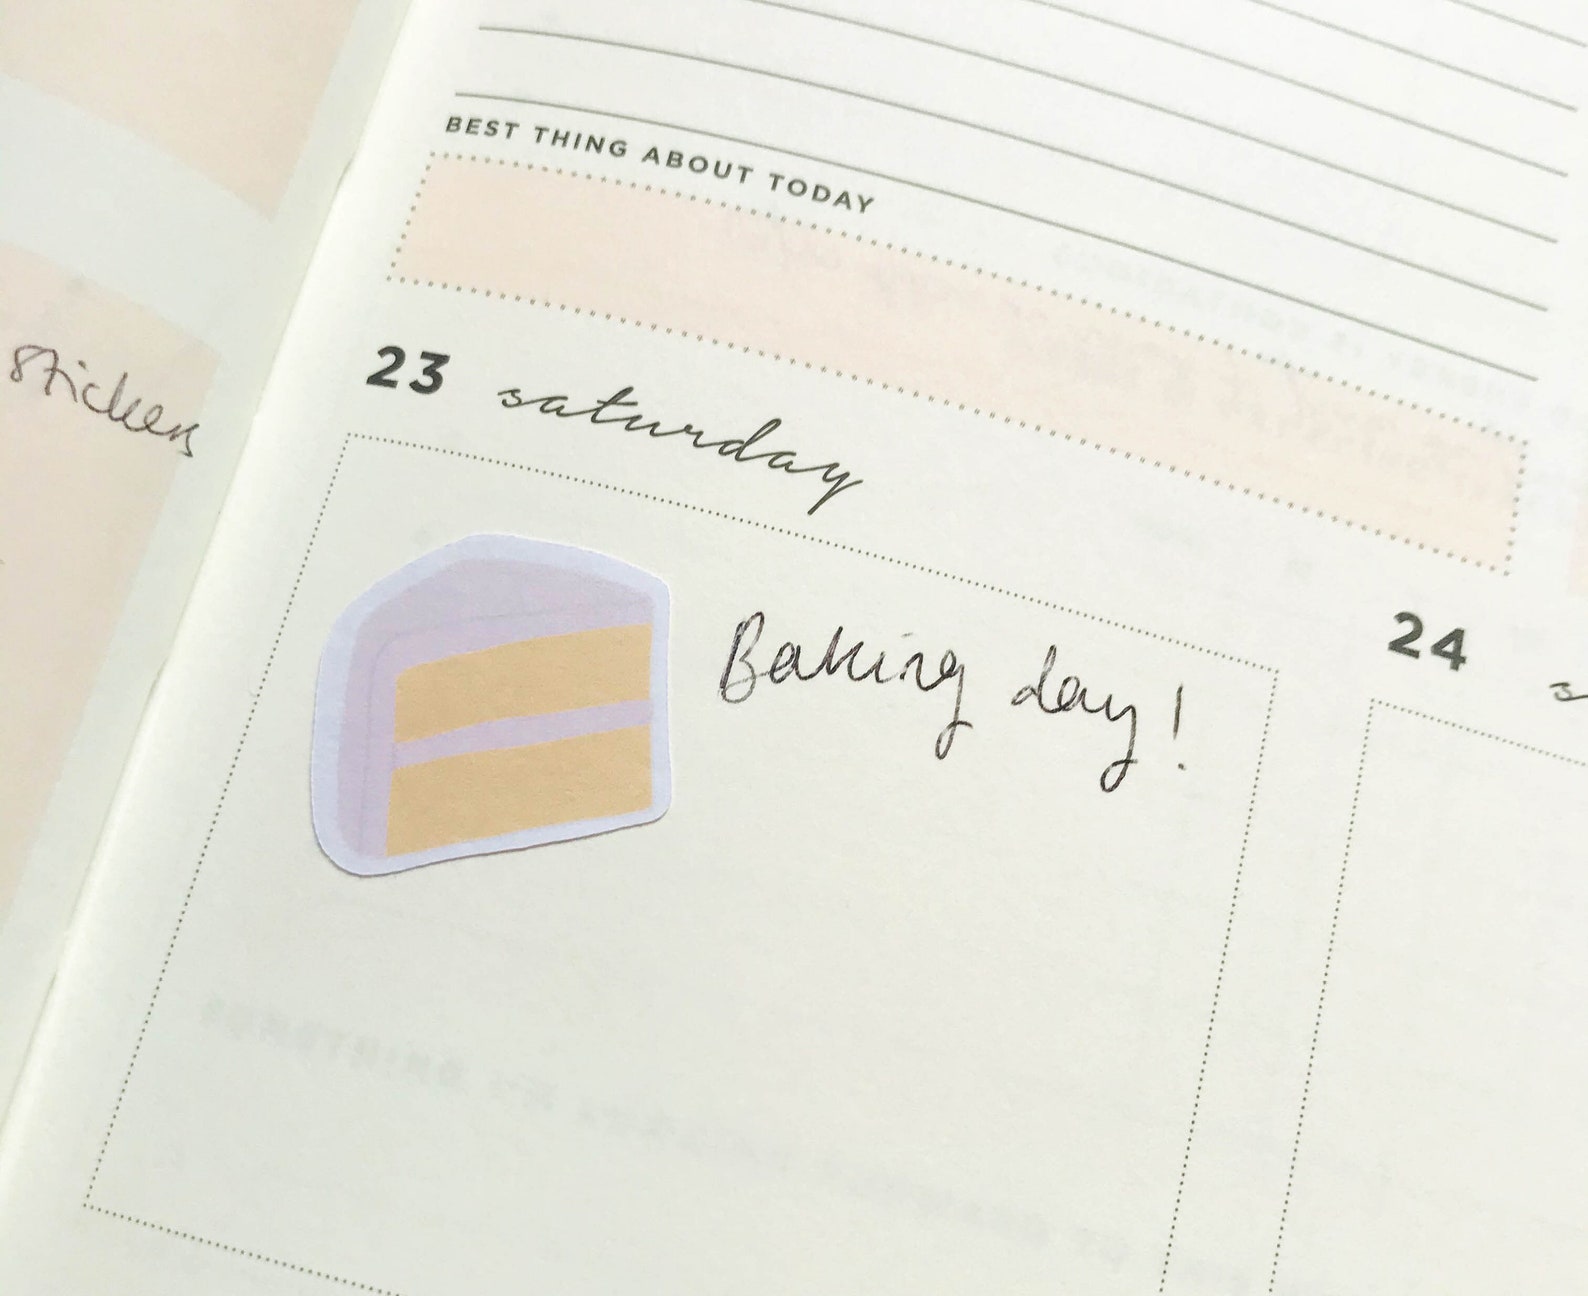 BEST THING ABOUT TODAY
stickers
23 saturday
Baking day!
24 s